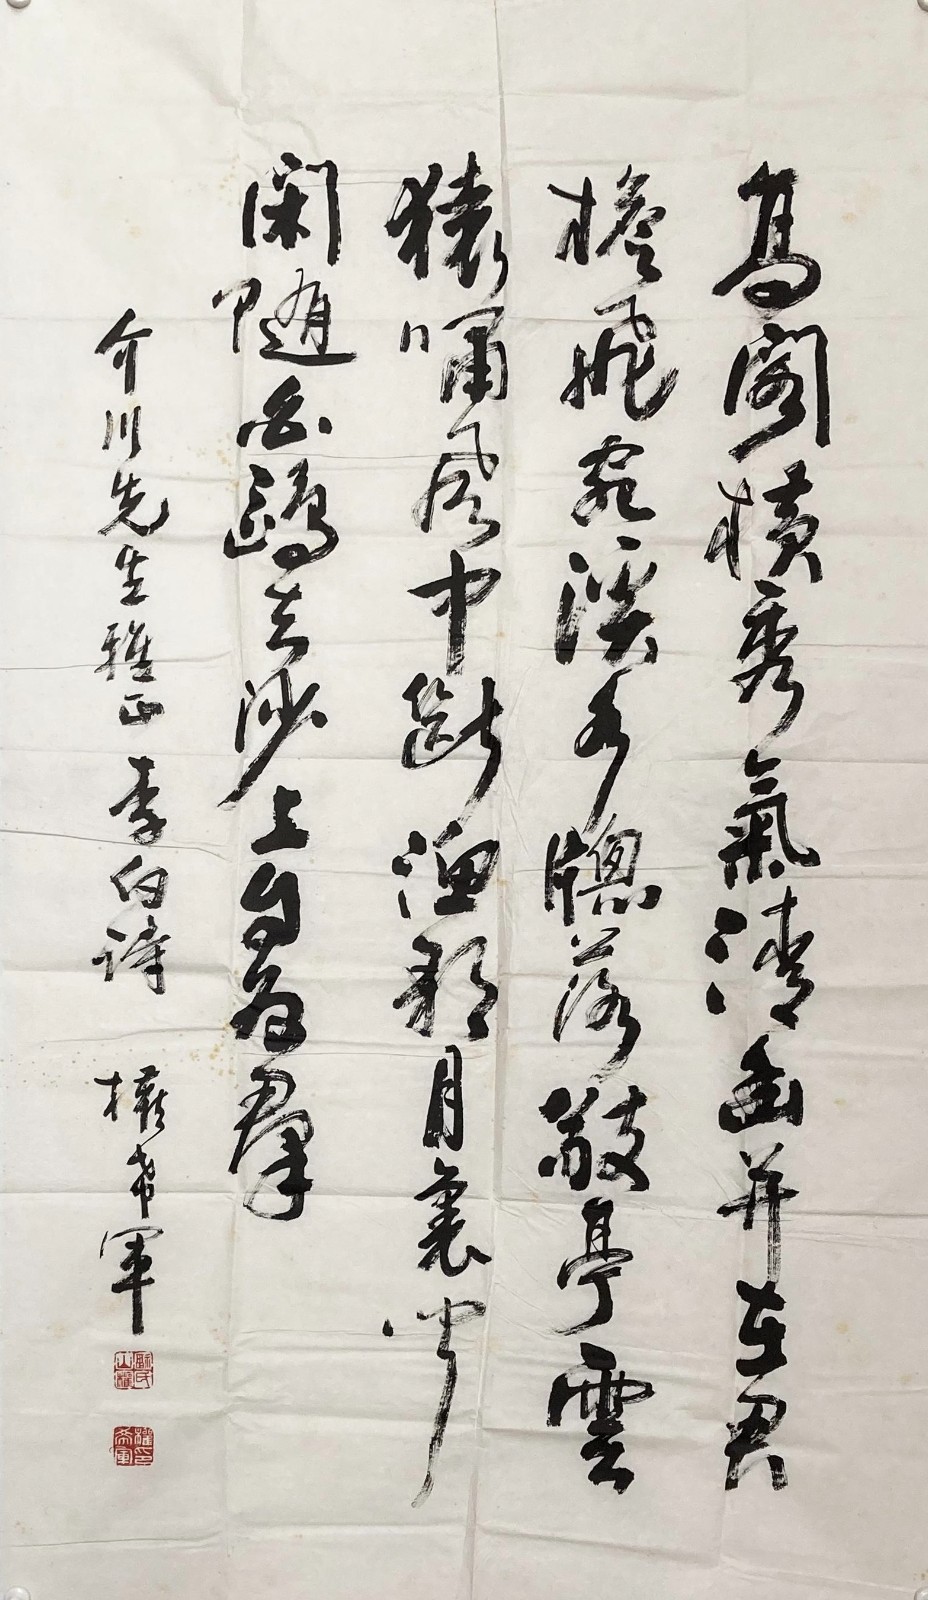 高閣橫秀氣清幽并在君
檐飛宛溪水牕落敬亭雲
猿嘯風中斷漁歌月裏聞
閑隨白鷗去沙上自為群
介川先生雅正 李白詩 權希軍
權印希軍